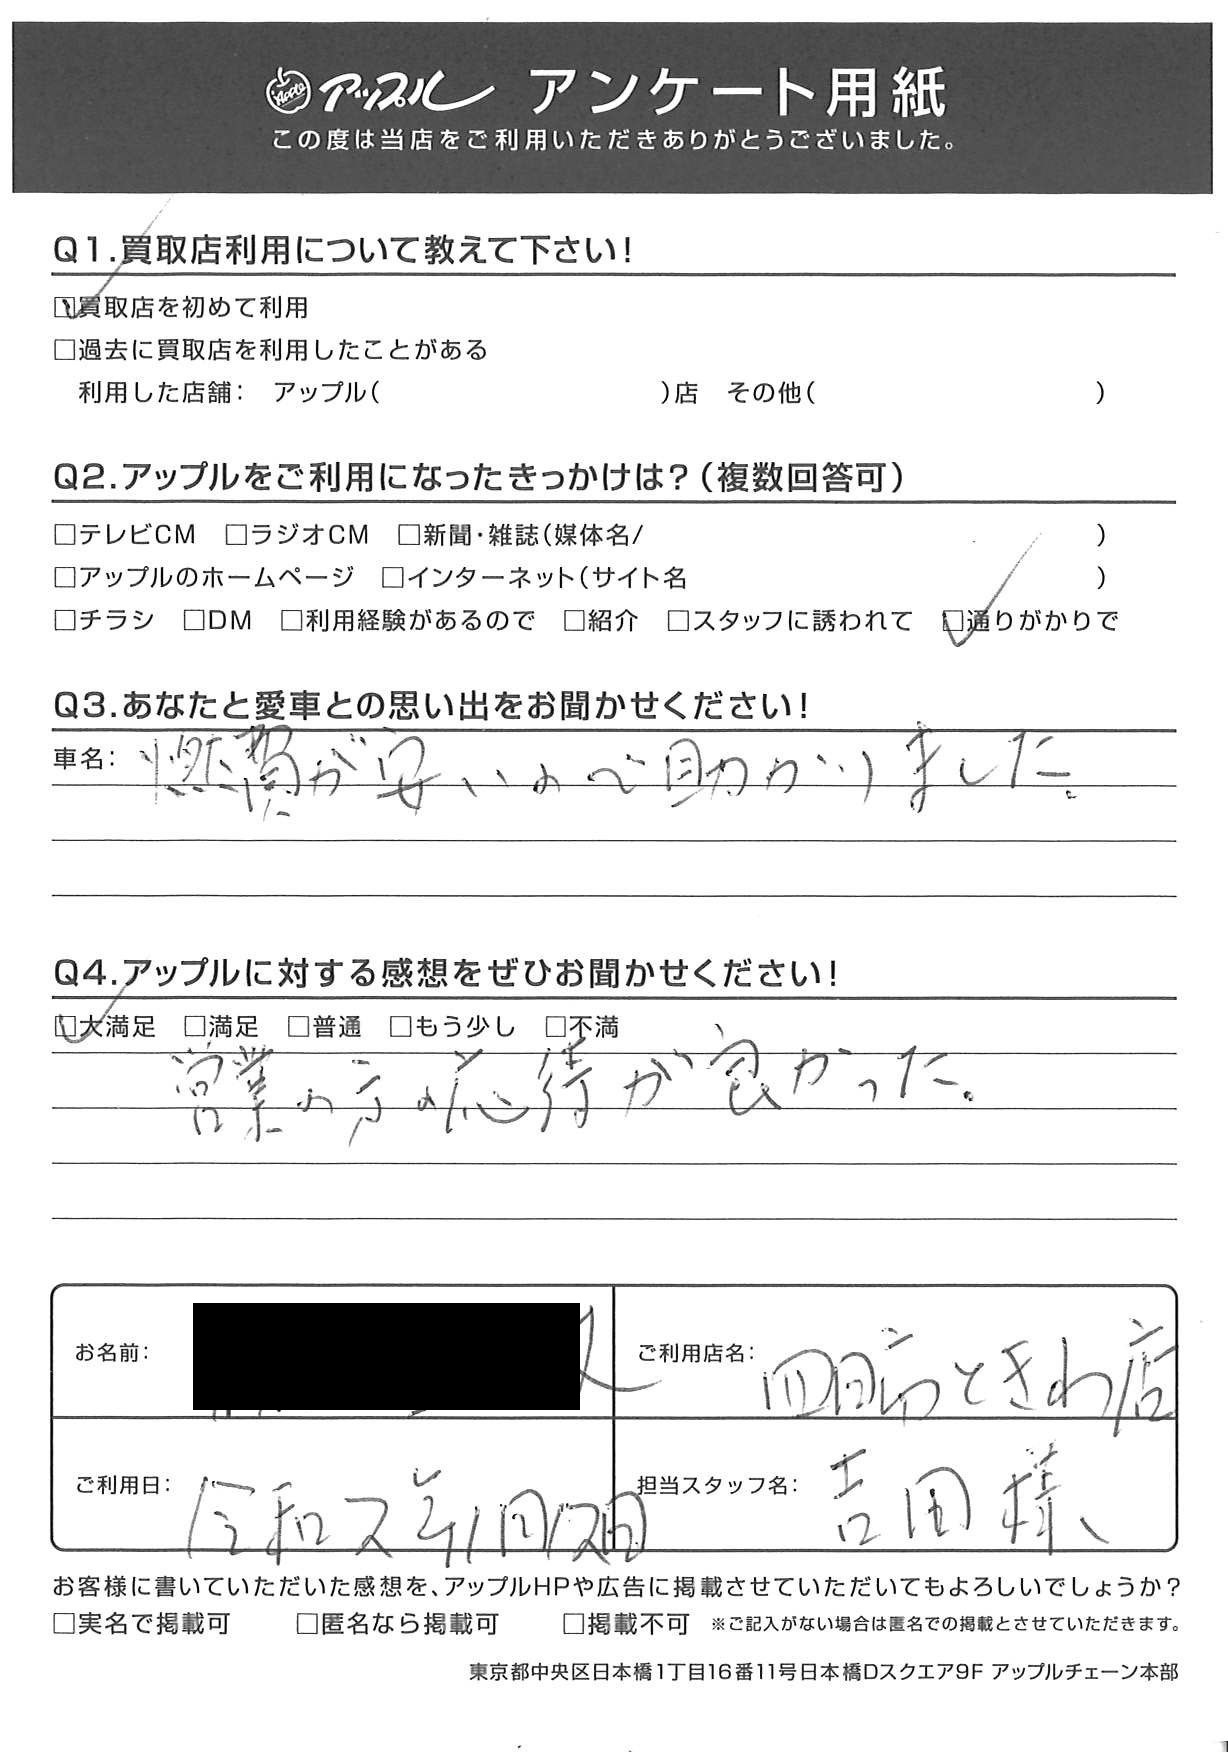 Apple アップル アンケート用紙
この度は当店をご利用いただきありがとうございました。
Q1.買取店利用について教えて下さい!
☑買取店を初めて利用
□過去に買取店を利用したことがある
利用した店舗: アップル( )店 その他( )
Q2.アップルをご利用になったきっかけは?(複数回答可)
□テレビCM □ラジオCM □新聞・雑誌(媒体名/ )
□アップルのホームページ □インターネット(サイト名 )
□チラシ □DM □利用経験があるので □紹介 □スタッフに誘われて ☑通りがかりで
Q3.あなたと愛車との思い出をお聞かせください!
車名: 燃費が安いので助かりました。
Q4.アップルに対する感想をぜひお聞かせください!
☑大満足 □満足 □普通 □もう少し □不満
営業の方の応待が良かった。
お名前:
ご利用店名: 四日市ときわ店
ご利用日: 令和2年1月
担当スタッフ名: 吉田様
お客様に書いていただいた感想を、アップルHPや広告に掲載させていただいてもよろしいでしょうか?
□実名で掲載可 □匿名なら掲載可 □掲載不可 ※ご記入がない場合は匿名での掲載とさせていただきます。
東京都中央区日本橋1丁目16番11号日本橋Dスクエア9F アップルチェーン本部